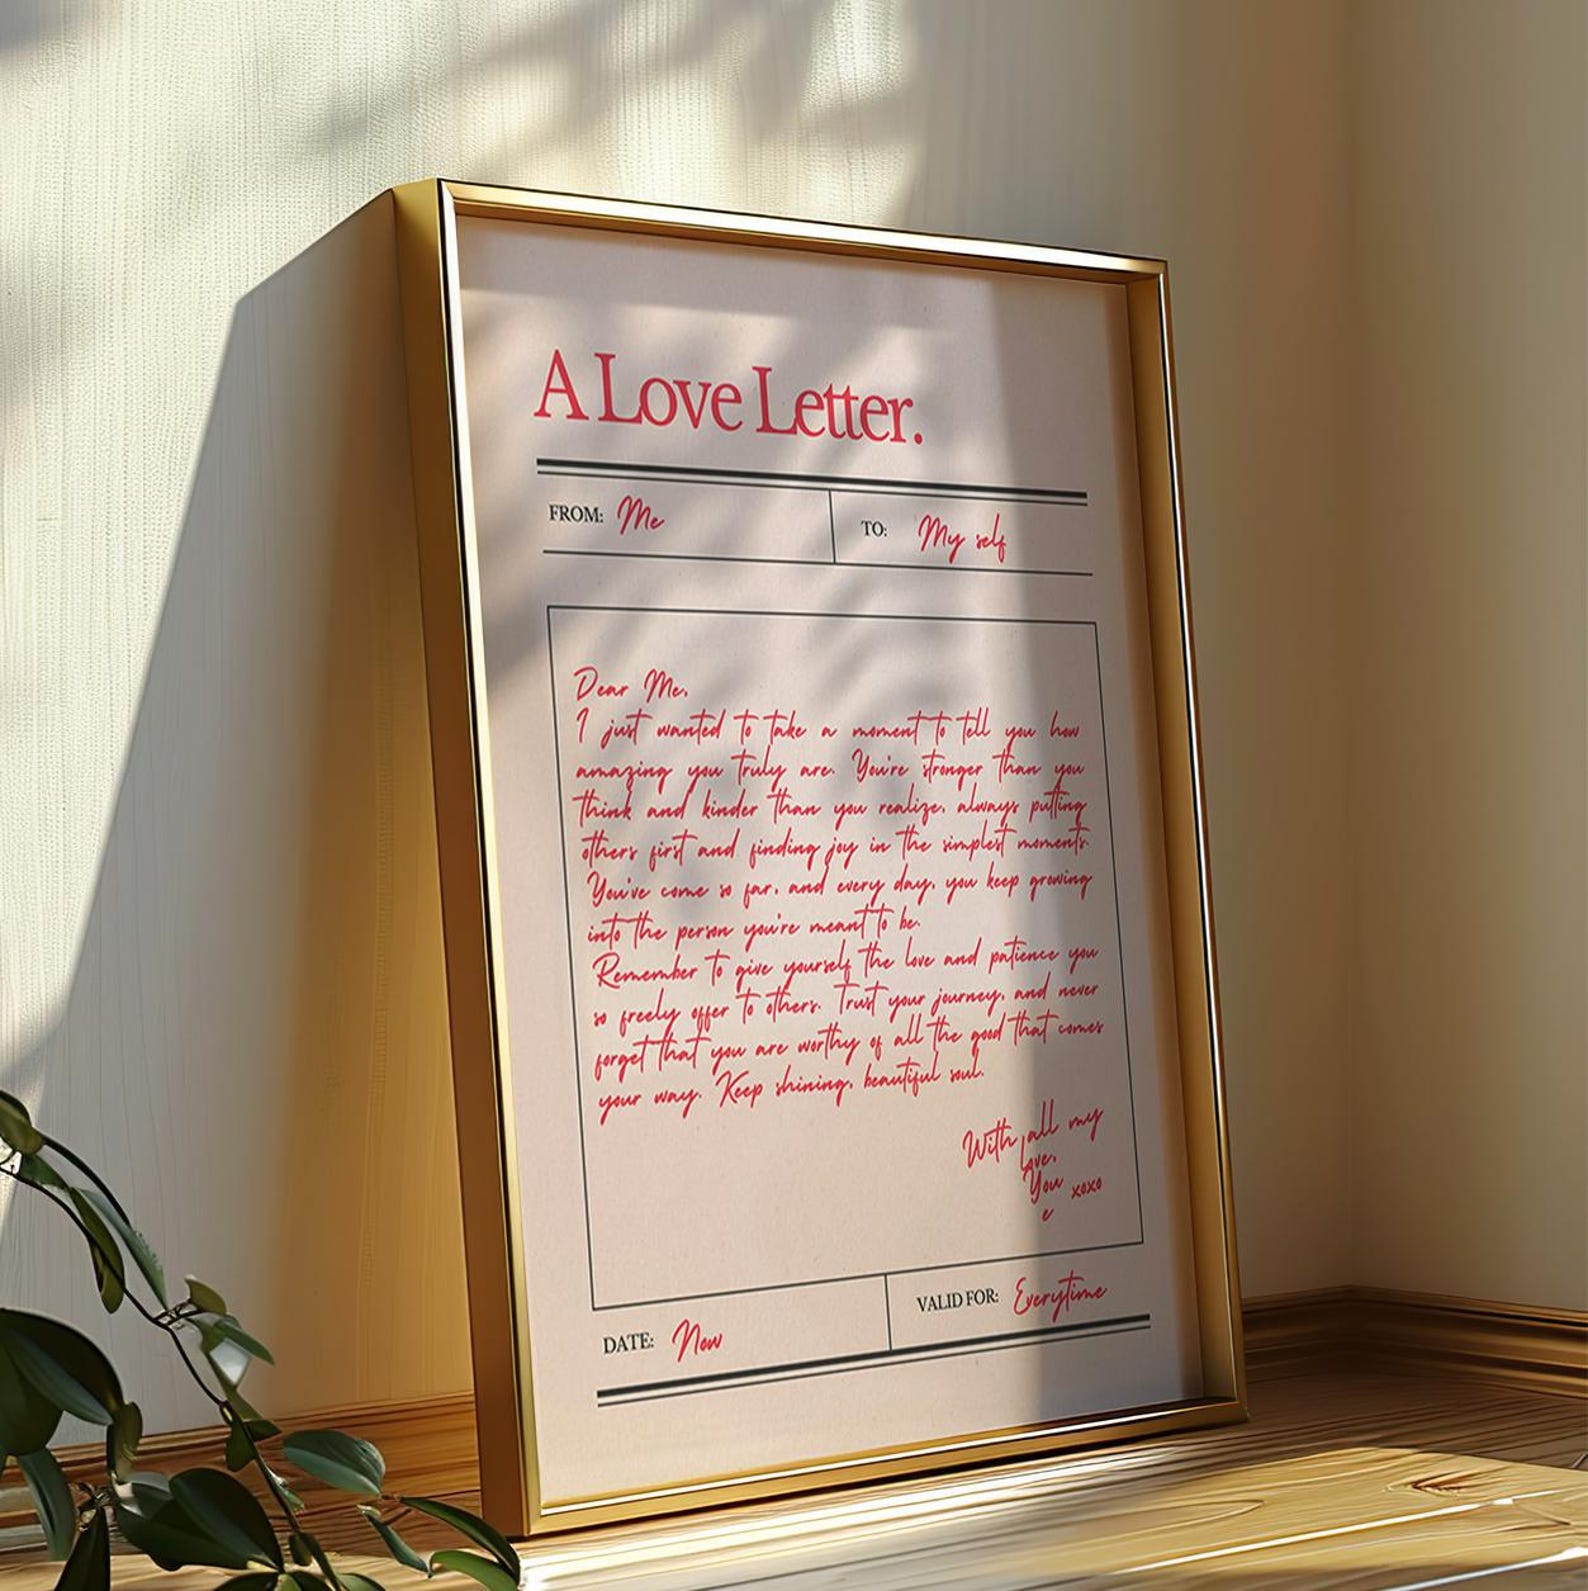 A Love Letter.
FROM: Me
TO: My self
Dear Me,
I just wanted to take a moment to tell you how
amazing you truly are. You're stronger than you
think and kinder than you realize, always putting
others first and finding joy in the simplest moments.
You've come so far, and every day, you keep growing
into the person you're meant to be.
Remember to give yourself the love and patience you
so freely offer to others. Trust your journey, and never
forget that you are worthy of all the good that comes
your way. Keep shining, beautiful soul.
With all my
Love,
You xoxo
e
DATE: Now
VALID FOR: Everytime